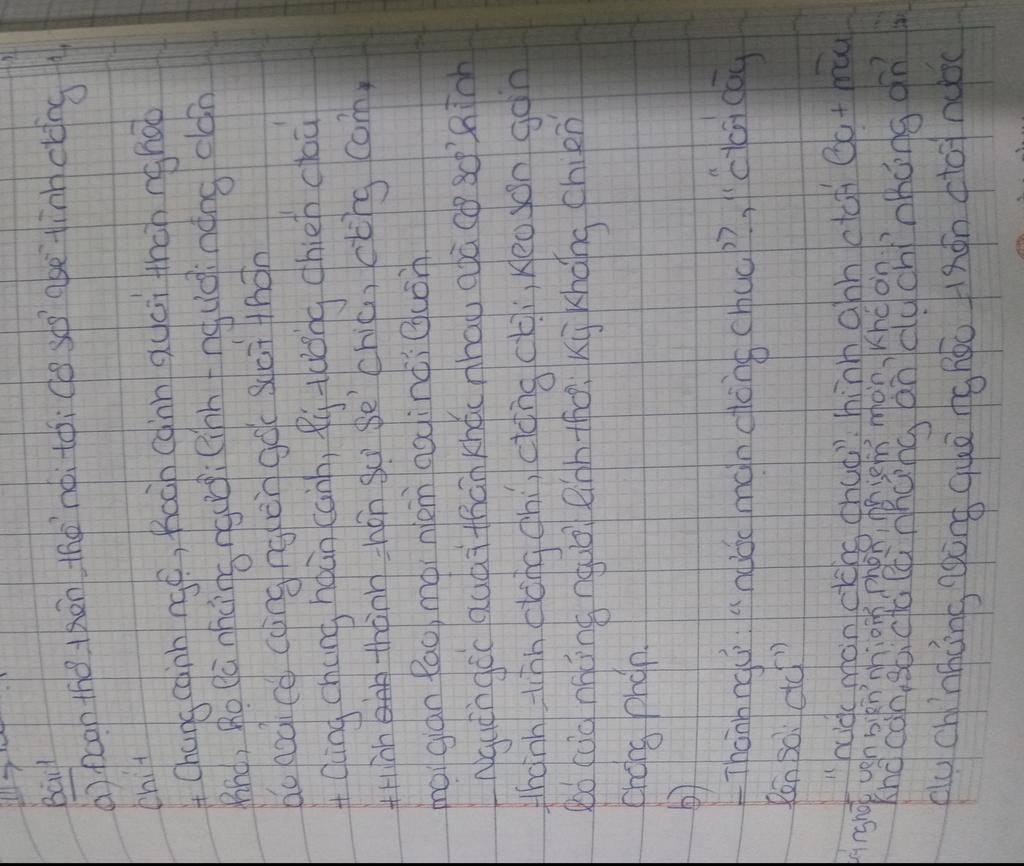 Bài 1
a) Đoạn thơ trên thể nói tới cơ sở về tình đồng
chí:
+ Chung cảnh ngộ, hoàn cảnh xuất thân nghèo
khó, họ là những người lính - người nông dân
áo vải có cùng nguồn gốc xuất thân
+ Cùng chung hoàn cảnh, lý tưởng chiến đấu
+ Hình thành trên sự sẻ chia, đồng cảm,
mọi gian lao, mọi niềm vui nỗi buồn.
- Nguồn gốc xuất thân khác nhau và cơ sở hình
thành tình đồng chí, đồng đội, keo sơn gắn
bó của những người lính thời kỳ kháng chiến
chống pháp.
b)
- Thành ngữ: "nước mặn đồng chua", "đất cày
lên sỏi đá"
"nước mặn đồng chua": hình ảnh đất bạt màu
ven biển nhiễm phèn nhiễm mặn, khó ăn.
khô cằn, sỏi đá là những ẩn dụ chỉ những
dụ chỉ những vùng quê nghèo trên đất nước